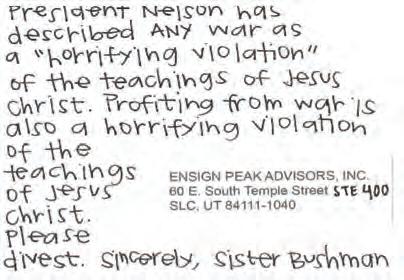 President Nelson has
described ANY war as
a "horrifying violation"
of the teachings of Jesus
Christ. Profiting from war is
also a horrifying violation
of the
teachings
of Jesus
Christ.
Please
divest. Sincerely, Sister Bushman
ENSIGN PEAK ADVISORS, INC.
60 E. South Temple Street STE 400
SLC, UT 84111-1040